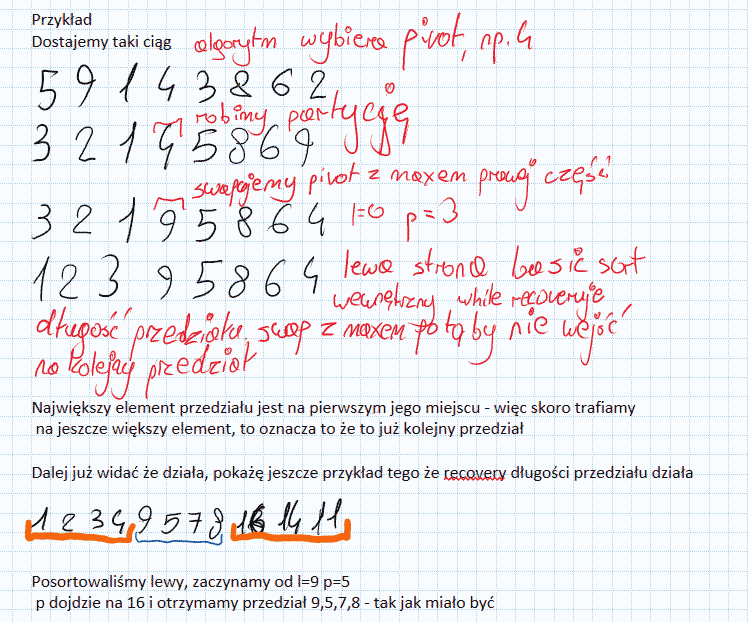 Przykład
Dostajemy taki ciąg algorytm wybiera pivot, np. 4
5 9 1 4 3 8 6 2
robimy partycję
3 2 1 4 5 8 6 9
swapujemy pivot z maxem prawej części
3 2 1 9 5 8 6 4 l=0 p=3
1 2 3 9 5 8 6 4 lewa strona basic sort
wewnętrzny while recoveruje
długość przedziału, swap z maxem po to by nie wejść
na kolejny przedział
Największy element przedziału jest na pierwszym jego miejscu - więc skoro trafiamy
na jeszcze większy element, to oznacza to że to już kolejny przedział
Dalej już widać że działa, pokażę jeszcze przykład tego że recovery długości przedziału działa
1 2 3 4 9 5 7 8 16 14 11
Posortowaliśmy lewy, zaczynamy od l=9 p=5
p dojdzie na 16 i otrzymamy przedział 9,5,7,8 - tak jak miało być